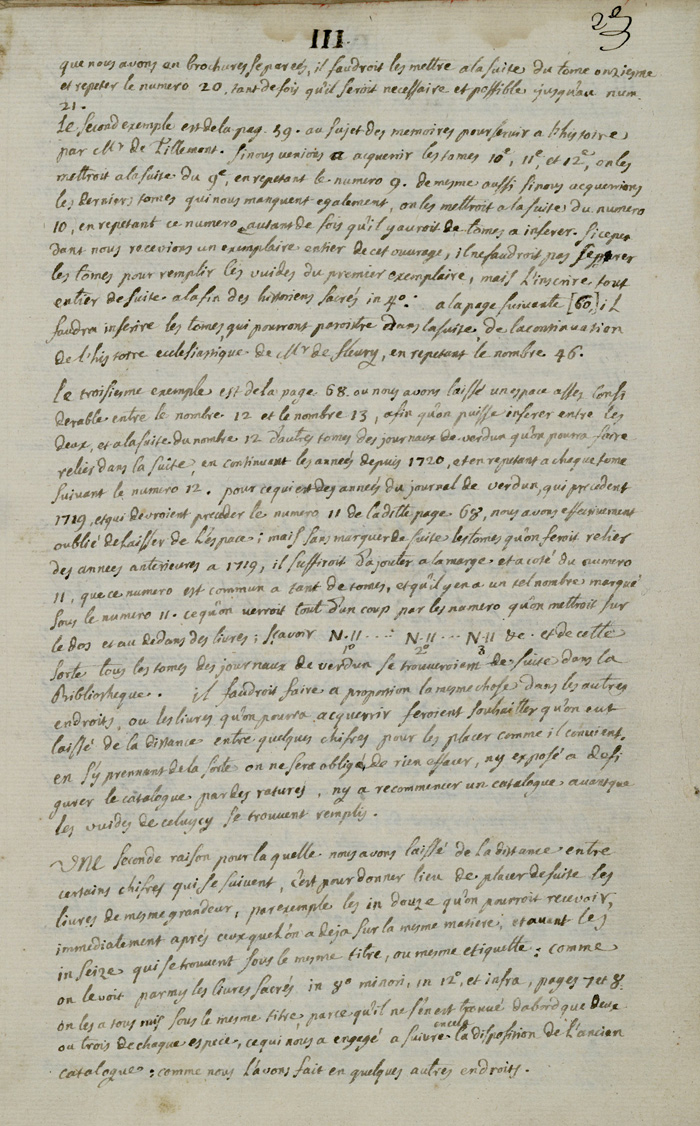 III
que nous avons en brochures separées, il faudroit les mettre a la suite du tome onziesme
et repeter le numero 20, tant de fois qu'il seroit necessaire et possible jusqu'au num.
21.
Le second exemple est de la pag. 59. au sujet des memoires pour servir a l'histoire
par Mr de Tillemont. si nous venions a acquerir les tomes 10e, 11e, et 12e, on les
mettroit a la suite du 9e, en repetant le numero 9. de mesme aussi si nous acquerrions
les derniers tomes qui nous manquent egalement, on les mettroit a la suite du numero
10, en repetant ce numero autant de fois qu'il y auroit de tomes a inserer. si cepen
dant nous recevions un exemplaire entier de cet ouvrage, il ne faudroit pas separer
les tomes pour remplir les vuides du premier exemplaire, mais l'inscrire tout
entier de suite a la fin des historiens sacrés in 4o: a la page suivante [60] il
faudra inserire les tomes, qui pourront paroitre dans la suite, de la continuation
de l'histoire ecclesiastique de Mr de fleury, en repetant le nombre 46.
Le troisiesme exemple est de la page 68. ou nous avons laissé un espace asses consi
derable entre le nombre 12 et le nombre 13, afin qu'on puisse inserer entre les
deux, et a la suite du nombre 12 d'autres tomes des journaux de verdun qu'on pourra faire
relier dans la suite, en continuant les années depuis 1720, et en repetant a chaque tome
suivant le numero 12. pour ce qui est des années du journal de verdun, qui precedent
1719, et qui devroient preceder le numero 11 de la ditte page 68, nous avons effectivement
oublié de laisser de l'espace; mais sans marquer de suite les tomes qu'on feroit relier
des années anterieures a 1719, il suffiroit d'ajouter a la marge et a coté du numero
11, que ce numero est commun a tant de tomes, et qu'il y en a un tel nombre marqué
sous le numero 11. ce qu'on verroit tout d'un coup par les numero qu'on mettroit sur
le dos et au dedans des livres; sçavoir N. 11 .... N. 11 ... N. 11 &c. et de cette
1o 2o 3
sorte tous les tomes des journaux de verdun se trouveroient de suite dans la
Bibliotheque. il faudroit faire a proportion la mesme chose dans les autres
endroits, ou les livres qu'on pourra acquerrir feroient souhaitter qu'on eut
laissé de la distance entre quelques chifres pour les placer comme il convient.
en s'y prennant de la sorte on ne sera obligé, de rien effacer, ny exposé a defi
gurer le catalogue par des ratures, ny a recommencer un catalogue avant que
les vuides de celuycy se trouvent remplis.
Une seconde raison pour la quelle nous avons laissé de la distance entre
certains chifres qui se suivent, c'est pour donner lieu de placer de suite les
livres de mesme grandeur, par exemple les in douze qu'on pourroit recevoir,
immediatement aprés ceux que l'on a deja sur la mesme matiere, et avant les
in seize qui se trouvent sous le mesme titre, ou mesme etiquette: comme
on le voit parmy les livres sacrés in 8o minori, in 12o, et infra, pages 7 et 8.
on les a tous mis sous le mesme titre, parce qu'il ne s'en est trouvé dabord que deux
ou trois de chaque espece, ce qui nous a engagé a suivre encela la disposition de l'ancien
catalogue: comme nous l'avons fait en quelques autres endroits.